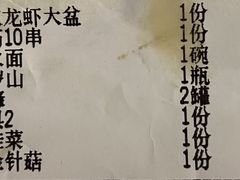 龙虾大盆 1份
10串 1份
面 1碗
山 1瓶
2罐
42 1份
菜 1份
金针菇 1份